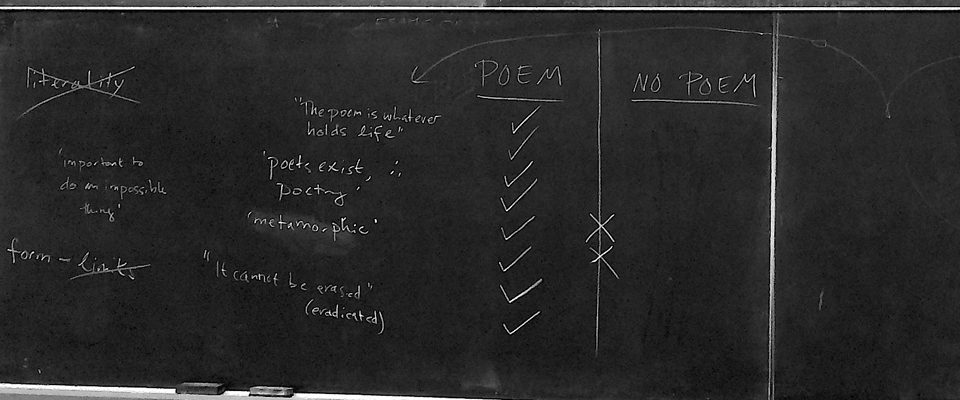 literality
'important to
do an impossible
thing'
form - limits
"The poem is whatever
holds life"
'poets exist, ∴
poetry'
'metamorphic'
"It cannot be erased"
(eradicated)
POEM
✓
✓
✓
✓
✓
✓
✓
✓
X
X
NO POEM